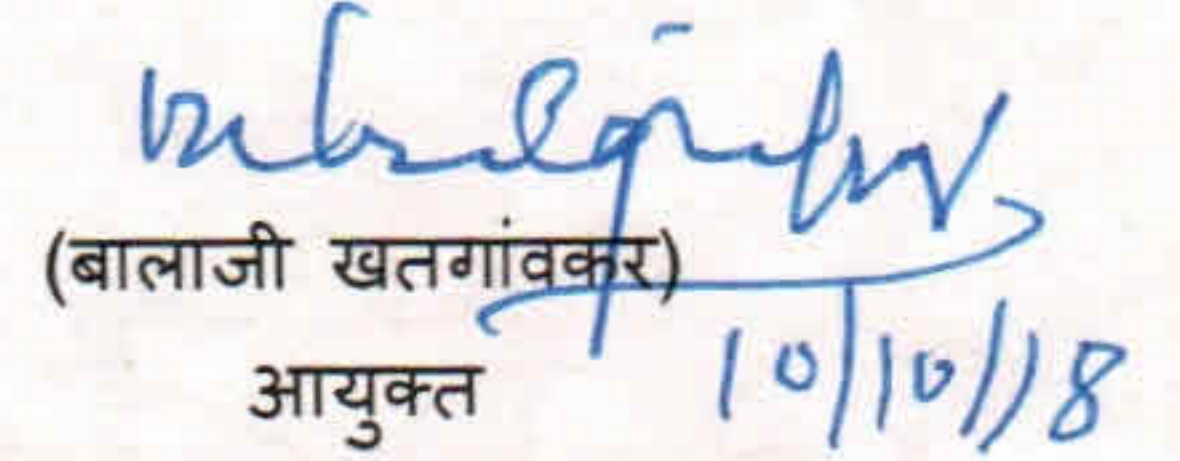 (बालाजी खतगांवकर)
आयुक्त 10/10/18